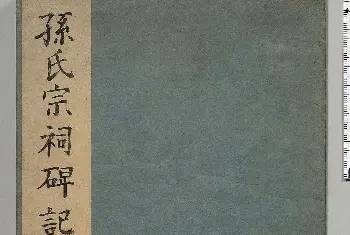 孫氏宗祠碑記